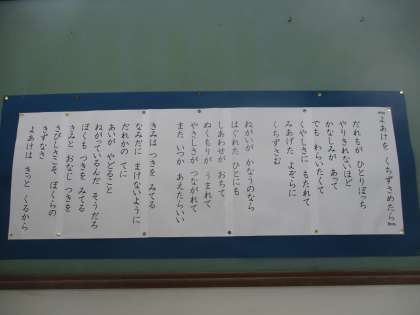 『よあけを くちずさめたら』
だれもが ひとりぼっち
やりきれないほど
かなしみが あって
でも わらいたくて
くやしさに もたれて
みあげた よぞらに
くちずさむ
ねがいが かなうのなら
はぐれた ひとにも
しあわせが おちて
ぬくもりが うまれて
やさしさが つながれて
また いつか あえたらいい
きみは つきを みてる
なみだに まけないように
だれかの てに
あいが やどること
ねがっているんだ そうだろ
ぼくも つきを みてる
きみと おなじ つきを
さびしさこそ、ぼくらの
きずなさ
よあけは きっと くるから